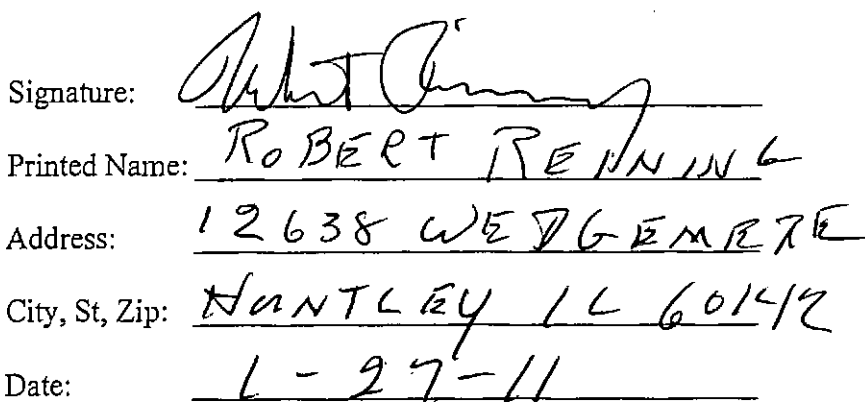 Signature:
Printed Name: ROBERT RENNING
Address: 12638 WEDGEMERE
City, St, Zip: HUNTLEY IL 60142
Date: 1-27-11